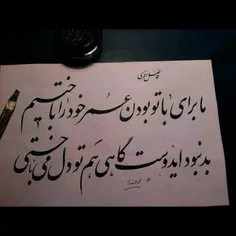 فاضل نظری
ما برای با تو بودن عمر خود را باختیم
بد نبود ای دوست گاهی هم تو دل می باختی